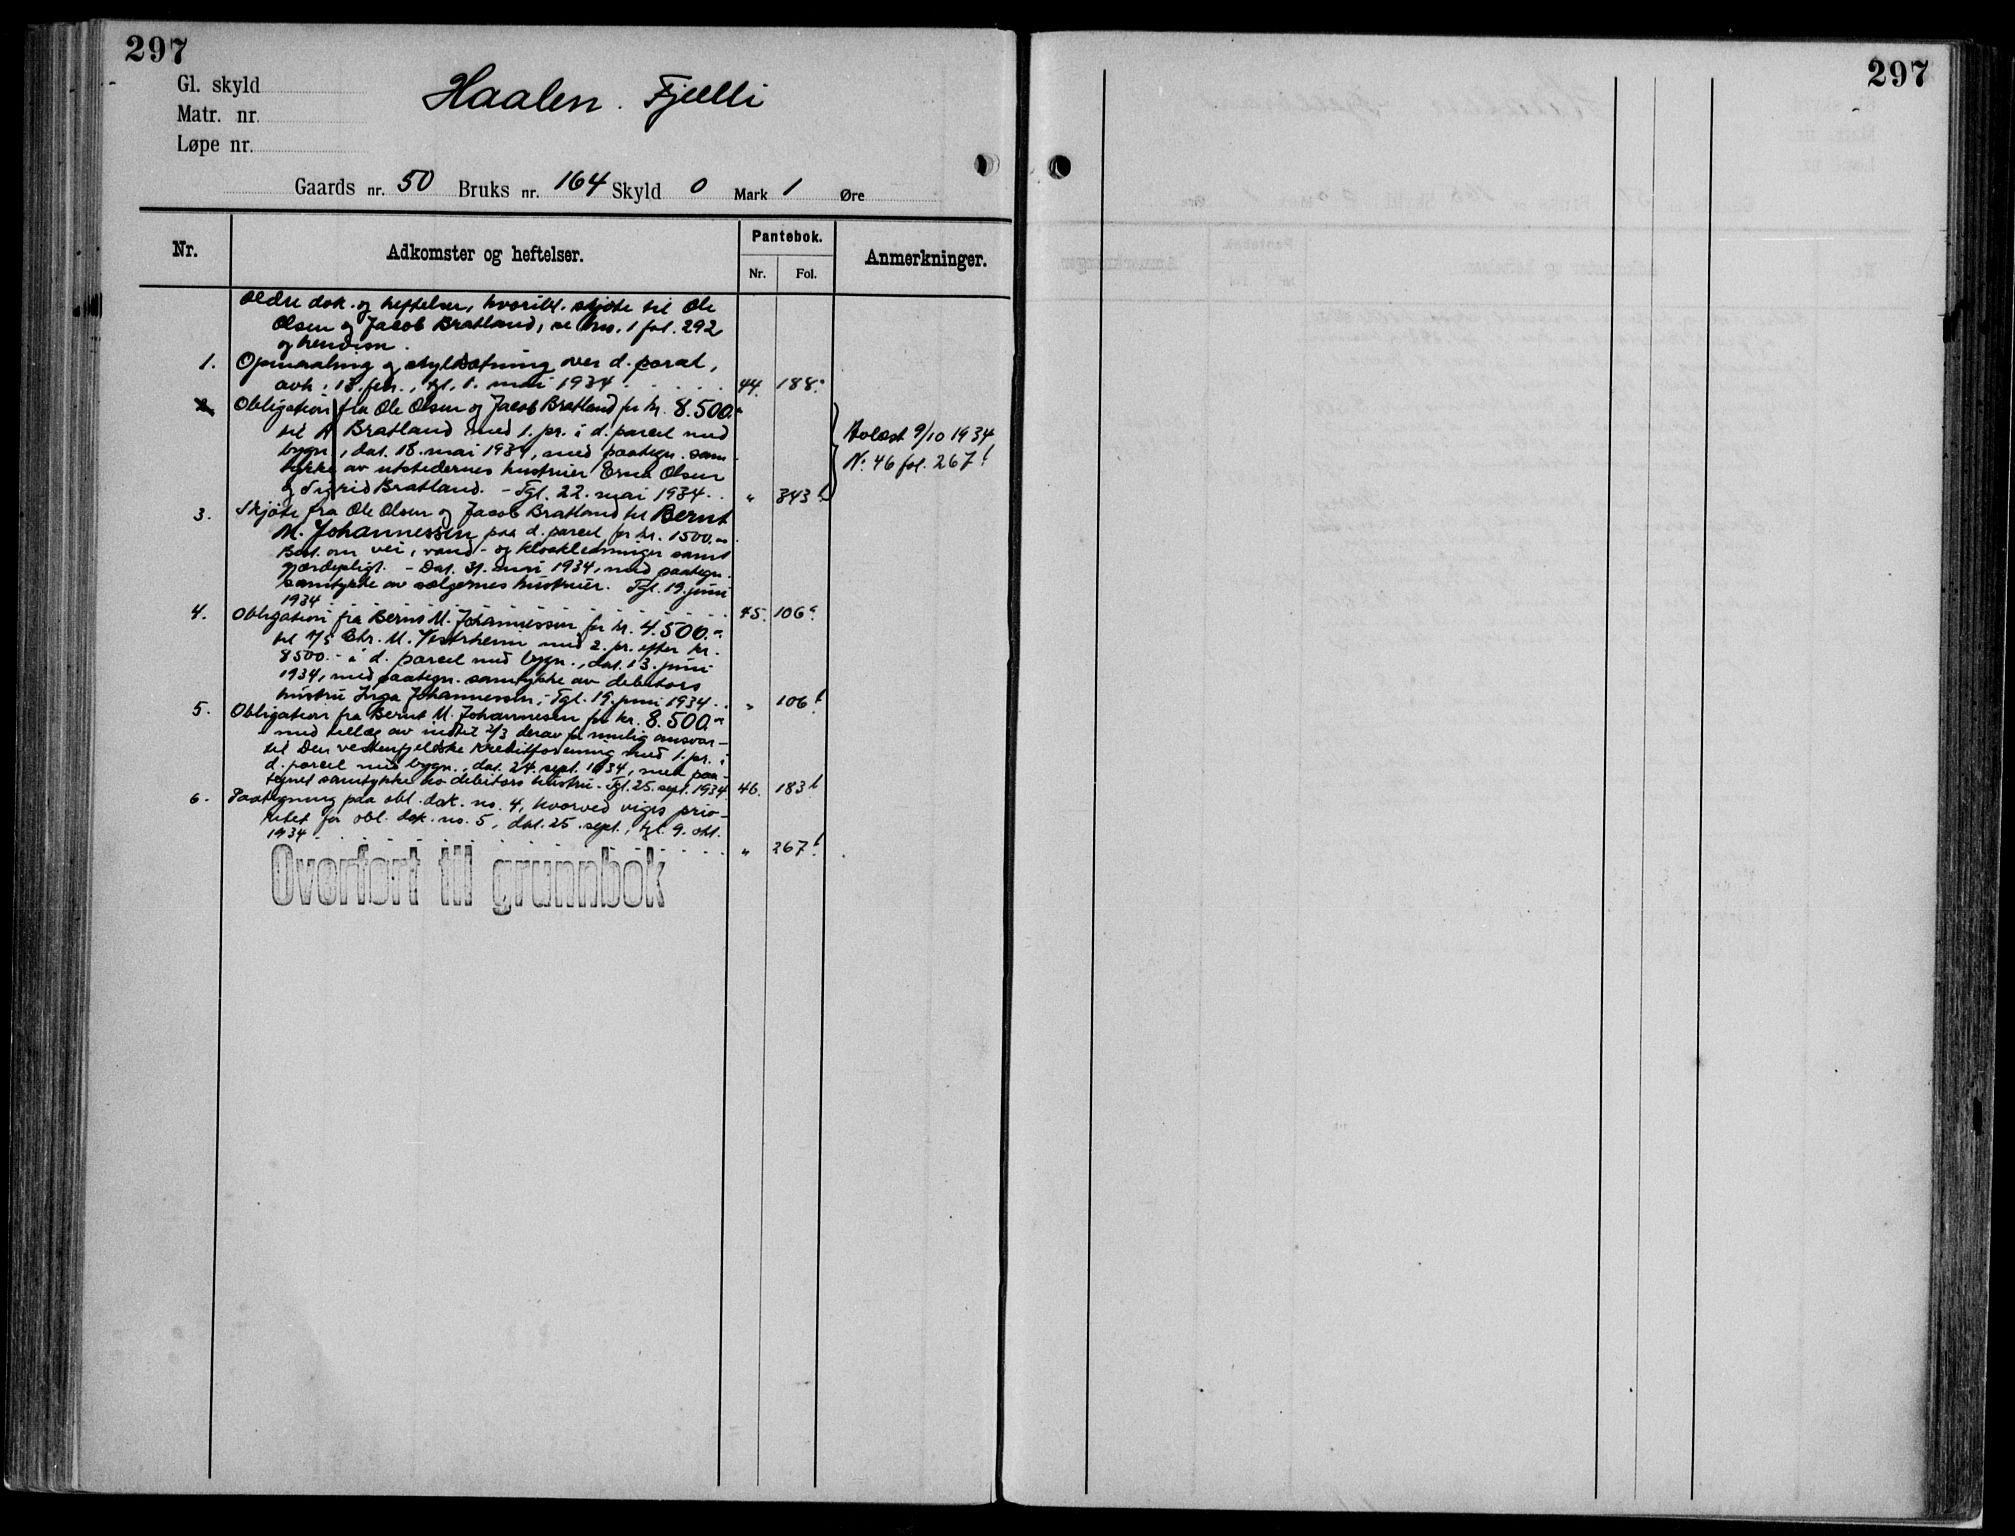 297
297
Gl. skyld
Haalen. Fjælli
Matr. nr.
Løpe nr.
Gaards nr. 50 Bruks nr. 164 Skyld 0 Mark 1 Øre
Nr.
Adkomster og heftelser.
Pantebok.
Nr. Fol.
Anmerkninger.
Ældre dok. og heftelser, hvoribl. skjøte til Ole
Olsen og Jacob Bratland, se bno. 1 fol. 292
og henvisn.
1. Opmaaling og skyldsætning over d. parcel,
avh. 13. febr., tgl. 1. mai 1934 . . . . . 44. 188a
2. Obligation fra Ole Olsen og Jacob Bratland for kr. 8.500.-
til A Bratland med 1. pr. i d. parcel med
bygn., dat. 18. mai 1934, med paategn. sam-
tykke av utstedernes hustruer Erna Olsen
og Sigrid Bratland. - Tgl. 22. mai 1934 . . " 343b
Avlæst 9/10 1934
N: 46 fol. 267b
3. Skjøte fra Ole Olsen og Jacob Bratland til Bernt
M. Johannessen paa d. parcel for kr. 1500.-
Best. om vei, vand- og kloakledninger samt
gjærdepligt. - Dat. 31. mai 1934, med paategn.
samtykke av sælgernes hustruer. Tgl. 19. juni
1934 . . . . . . . . . . . 45. 106a
4. Obligation fra Bernt M. Johannessen for kr. 4.500.-
til A/S Chr. M. Vestrheim med 2. pr. efter kr.
8500.- i d. parcel med bygn., dat. 13. juni
1934, med paategn. samtykke av debitors
hustru Inga Johannessen, - Tgl. 19. juni 1934 . . " 106b
5. Obligation fra Bernt M. Johannesen for kr. 8.500.-
med tillæg av indtil 2/3 derav for mulig ansvar -
til Den vestenfjeldske Kreditforening med 1. pr. i
d. parcel med bygn., dat. 24. sept. 1934, med paa-
tegnet samtykke av debitors hustru. - Tgl. 25. sept. 1934. 46. 183b
6. Paategning paa obl. dok. no. 4, hvorved viges prio-
ritet for obl. dok. no. 5, dat. 25. sept., tgl. 9. okt.
1934 . . . . . . . . . . . " 267b
Overført til grunnbok